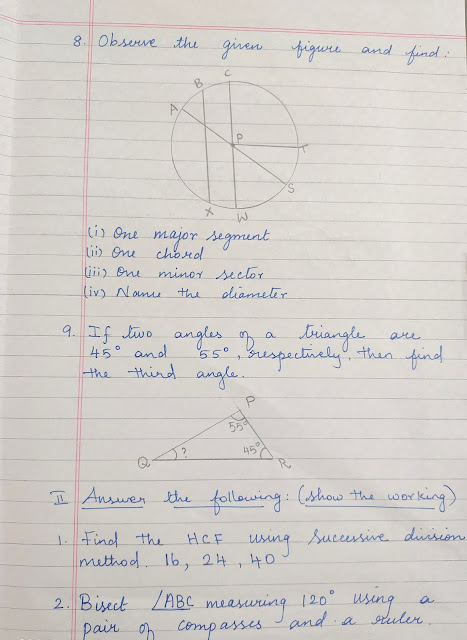 8. Observe the given figure and find:
C
B
A
P
T
S
X
W
(i) One major segment
(ii) One chord
(iii) One minor sector
(iv) Name the diameter
9. If two angles of a triangle are
45° and 55°, respectively, then find
the third angle.
P
55°
Q ? 45° R
II Answer the following: (show the working)
1. Find the HCF using successive division
method. 16, 24, 40
2. Bisect ∠ABC measuring 120° using a
pair of compasses and a ruler.